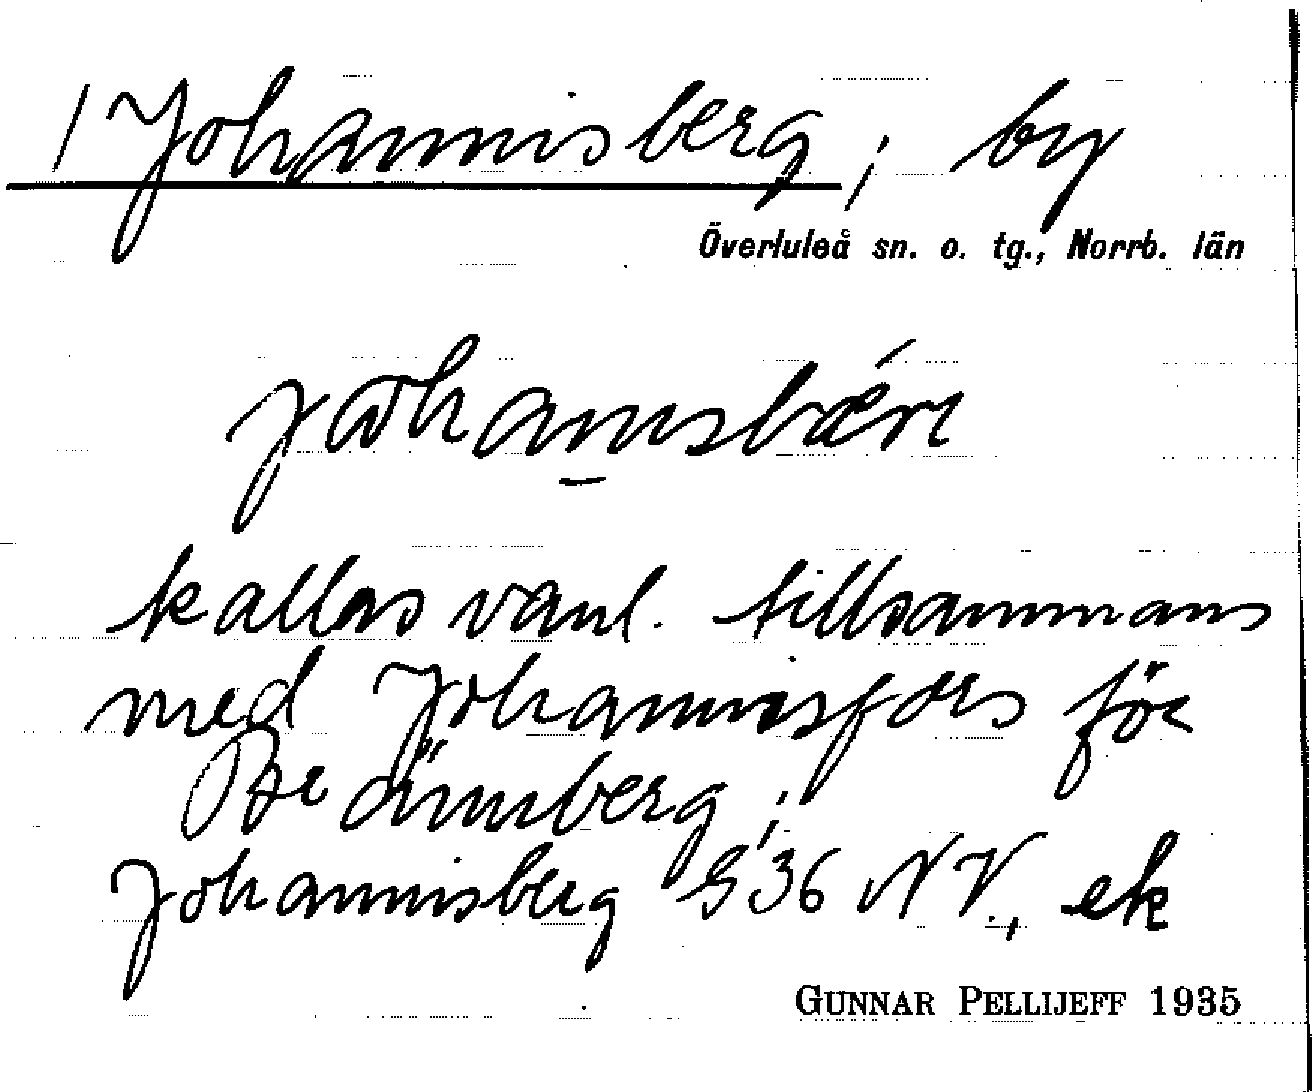 / Johannisberg; by
Överluleå sn. o. tg., Norrb. län
johannsbǽrı
kallas vanl. tillsammans
med Johannisfors för
Brännberg;
Johannisberg S36 NV., ek
GUNNAR PELLIJEFF 1935